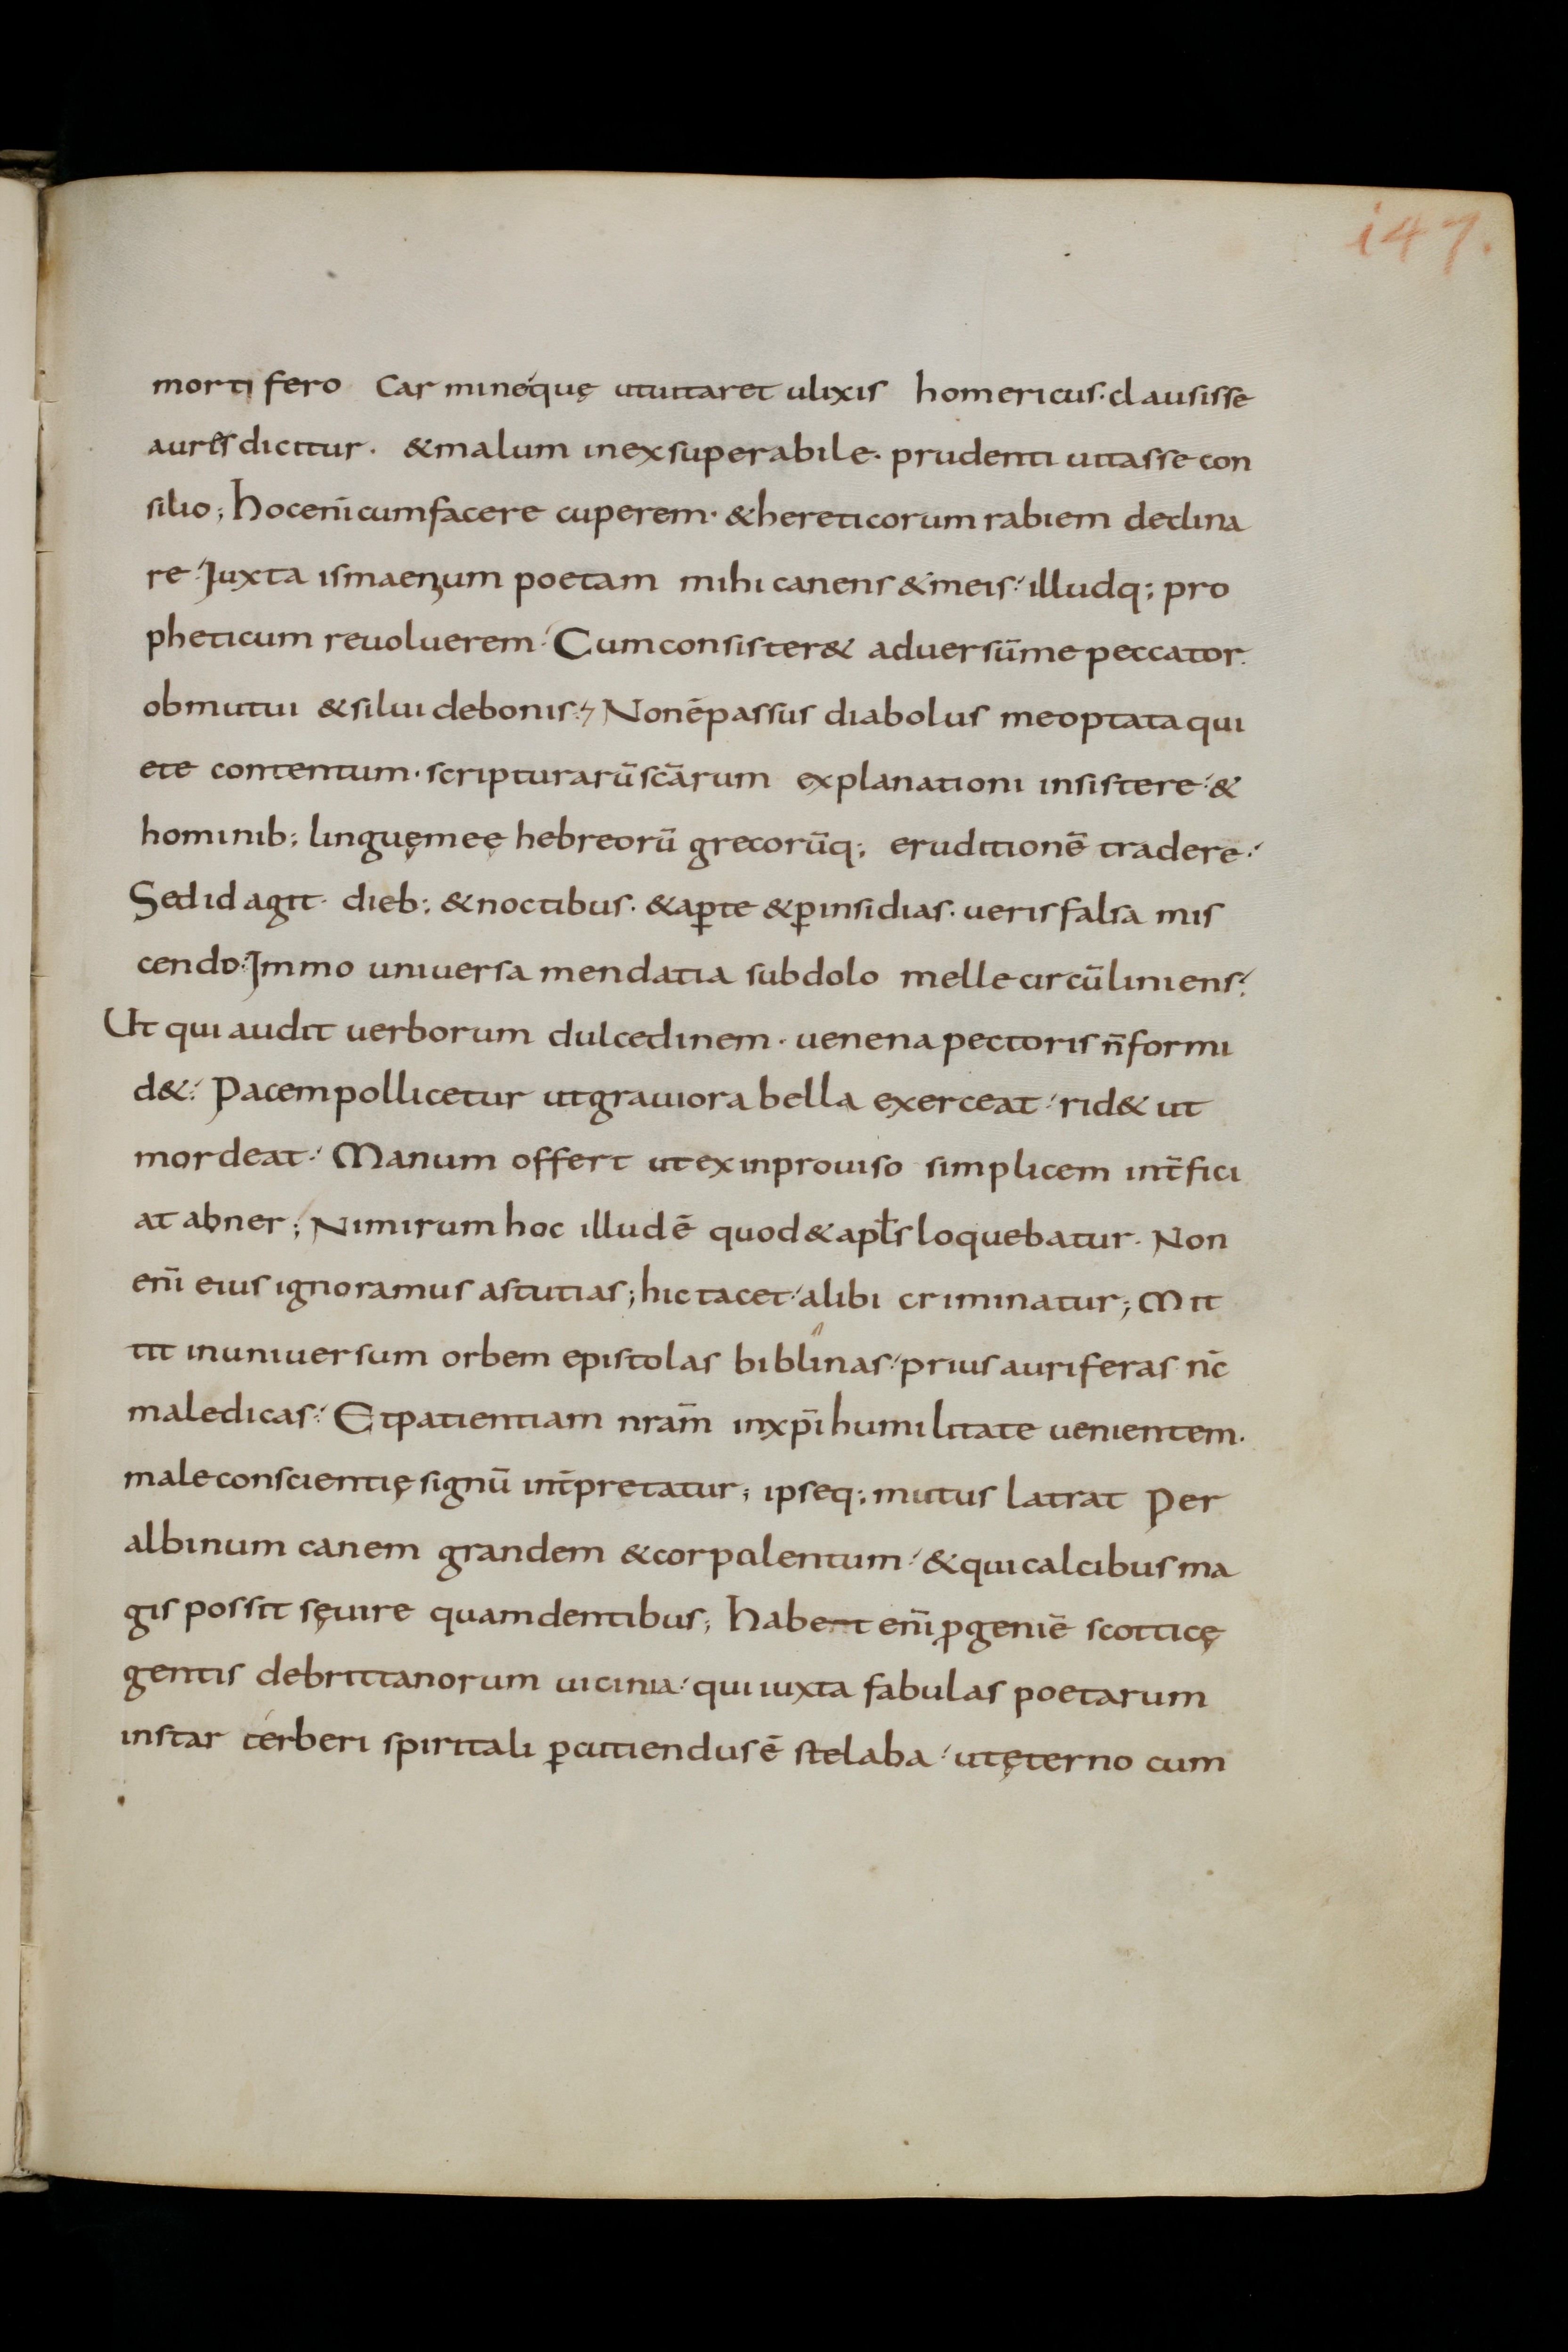 i47.
mortifero Carmineque̜ utuitaret ulixis homericus· clausisse
aures dicitur· & malum inexsuperabile· prudenti uitasse con
silio; hoc enī cum facere cuperem· & hereticorum rabiem declina
re· Juxta ismaenium poetam mihi canens & meis· illudq; pro
pheticum reuoluerem· Cum consister& aduersū me peccator·
obmutui & silui debonis· Non ē passus diabolus me optata qui
ete contentum· scripturarū scārum explanationi insistere· &
hominib; lingue̜ mee̜ hebreorū grecorūq; eruditionē tradere·
Sed id agit· dieb; & noctibus· & ap̱te & p̱ insidias· ueris falsa mis
cendo· Jmmo uniuersa mendatia subdolo melle circūliniens·
Ut qui audit uerborum dulcedinem· uenena pectoris n̄ formi
d&· Pacem pollicetur ut grauiora bella exerceat· rid& ut
mordeat· Manum offert ut ex inprouiso simplicem int̄fici
at abner; Nimirum hoc illud ē quod & apl̄s loquebatur· Non
enī eius ignoramus astutias; hic tacet· alibi criminatur; Mit
tit in uniuersum orbem epistolas biblinas· prius auriferas nc̄
maledicas· Et patientiam nrām in xp̄i humilitate uenientem·
male conscientie̜ signū int̄pretatur; ipseq; mutus latrat Per
albinum canem grandem & corpulentum· & qui calcibus ma
gis possit se̜uire quam dentibus; habent enī ꝓgeniē scottice̜
gentis de brittanorum uicinia· qui iuxta fabulas poetarum
instar cerberi spiritali p̱cutiendus ē stelaba· ut e̜terno cum